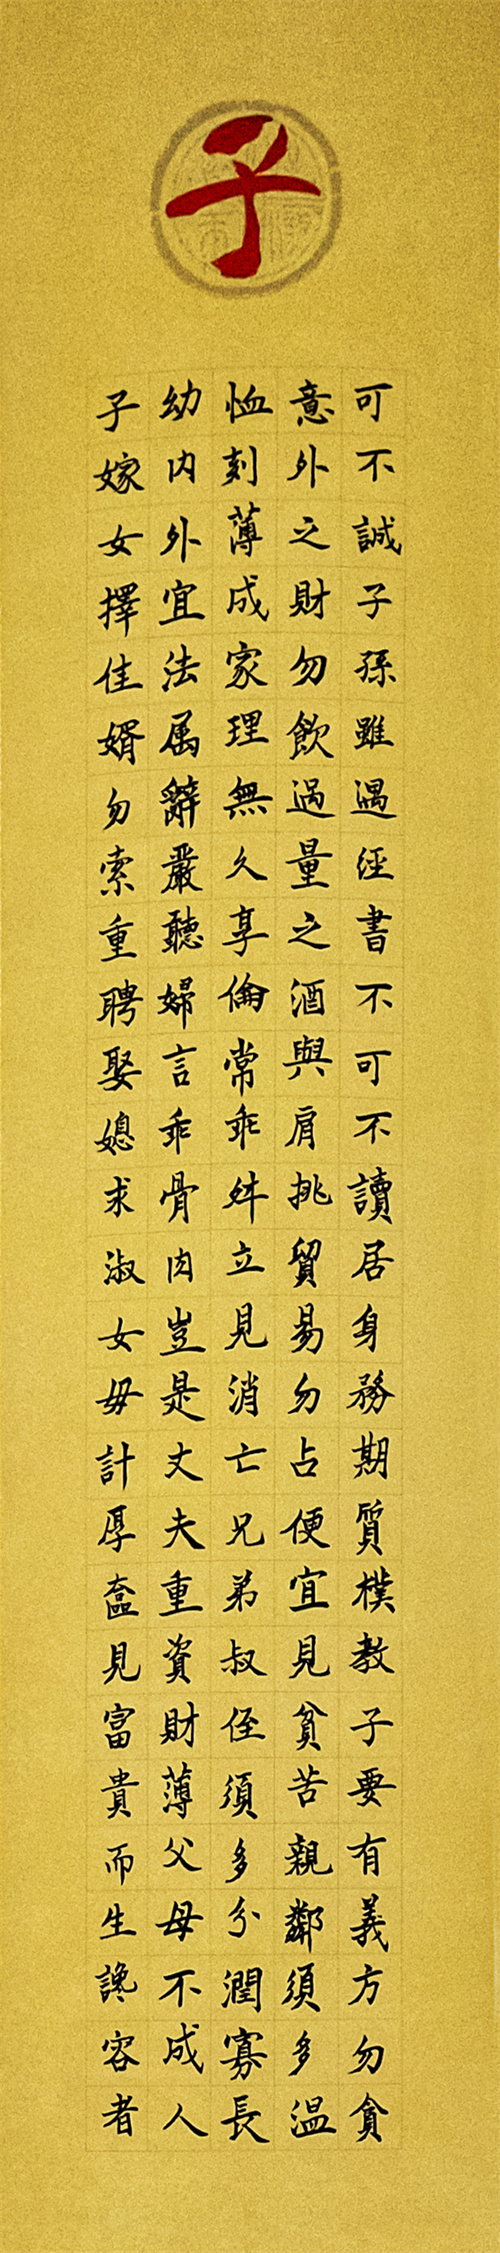 子
可不誠子孫雖遇經書不可不讀居身務期質樸教子要有義方勿貪
意外之財勿飲過量之酒與肩挑貿易勿占便宜見貧苦親鄰須多温
恤刻薄成家理無久享倫常乖舛立見消亡兄弟叔侄須多分潤寡長
幼内外宜法属辭嚴聽婦言乖骨肉豈是丈夫重資財薄父母不成人
子嫁女擇佳婿勿索重聘娶媳求淑女毋計厚奩見富貴而生讒容者